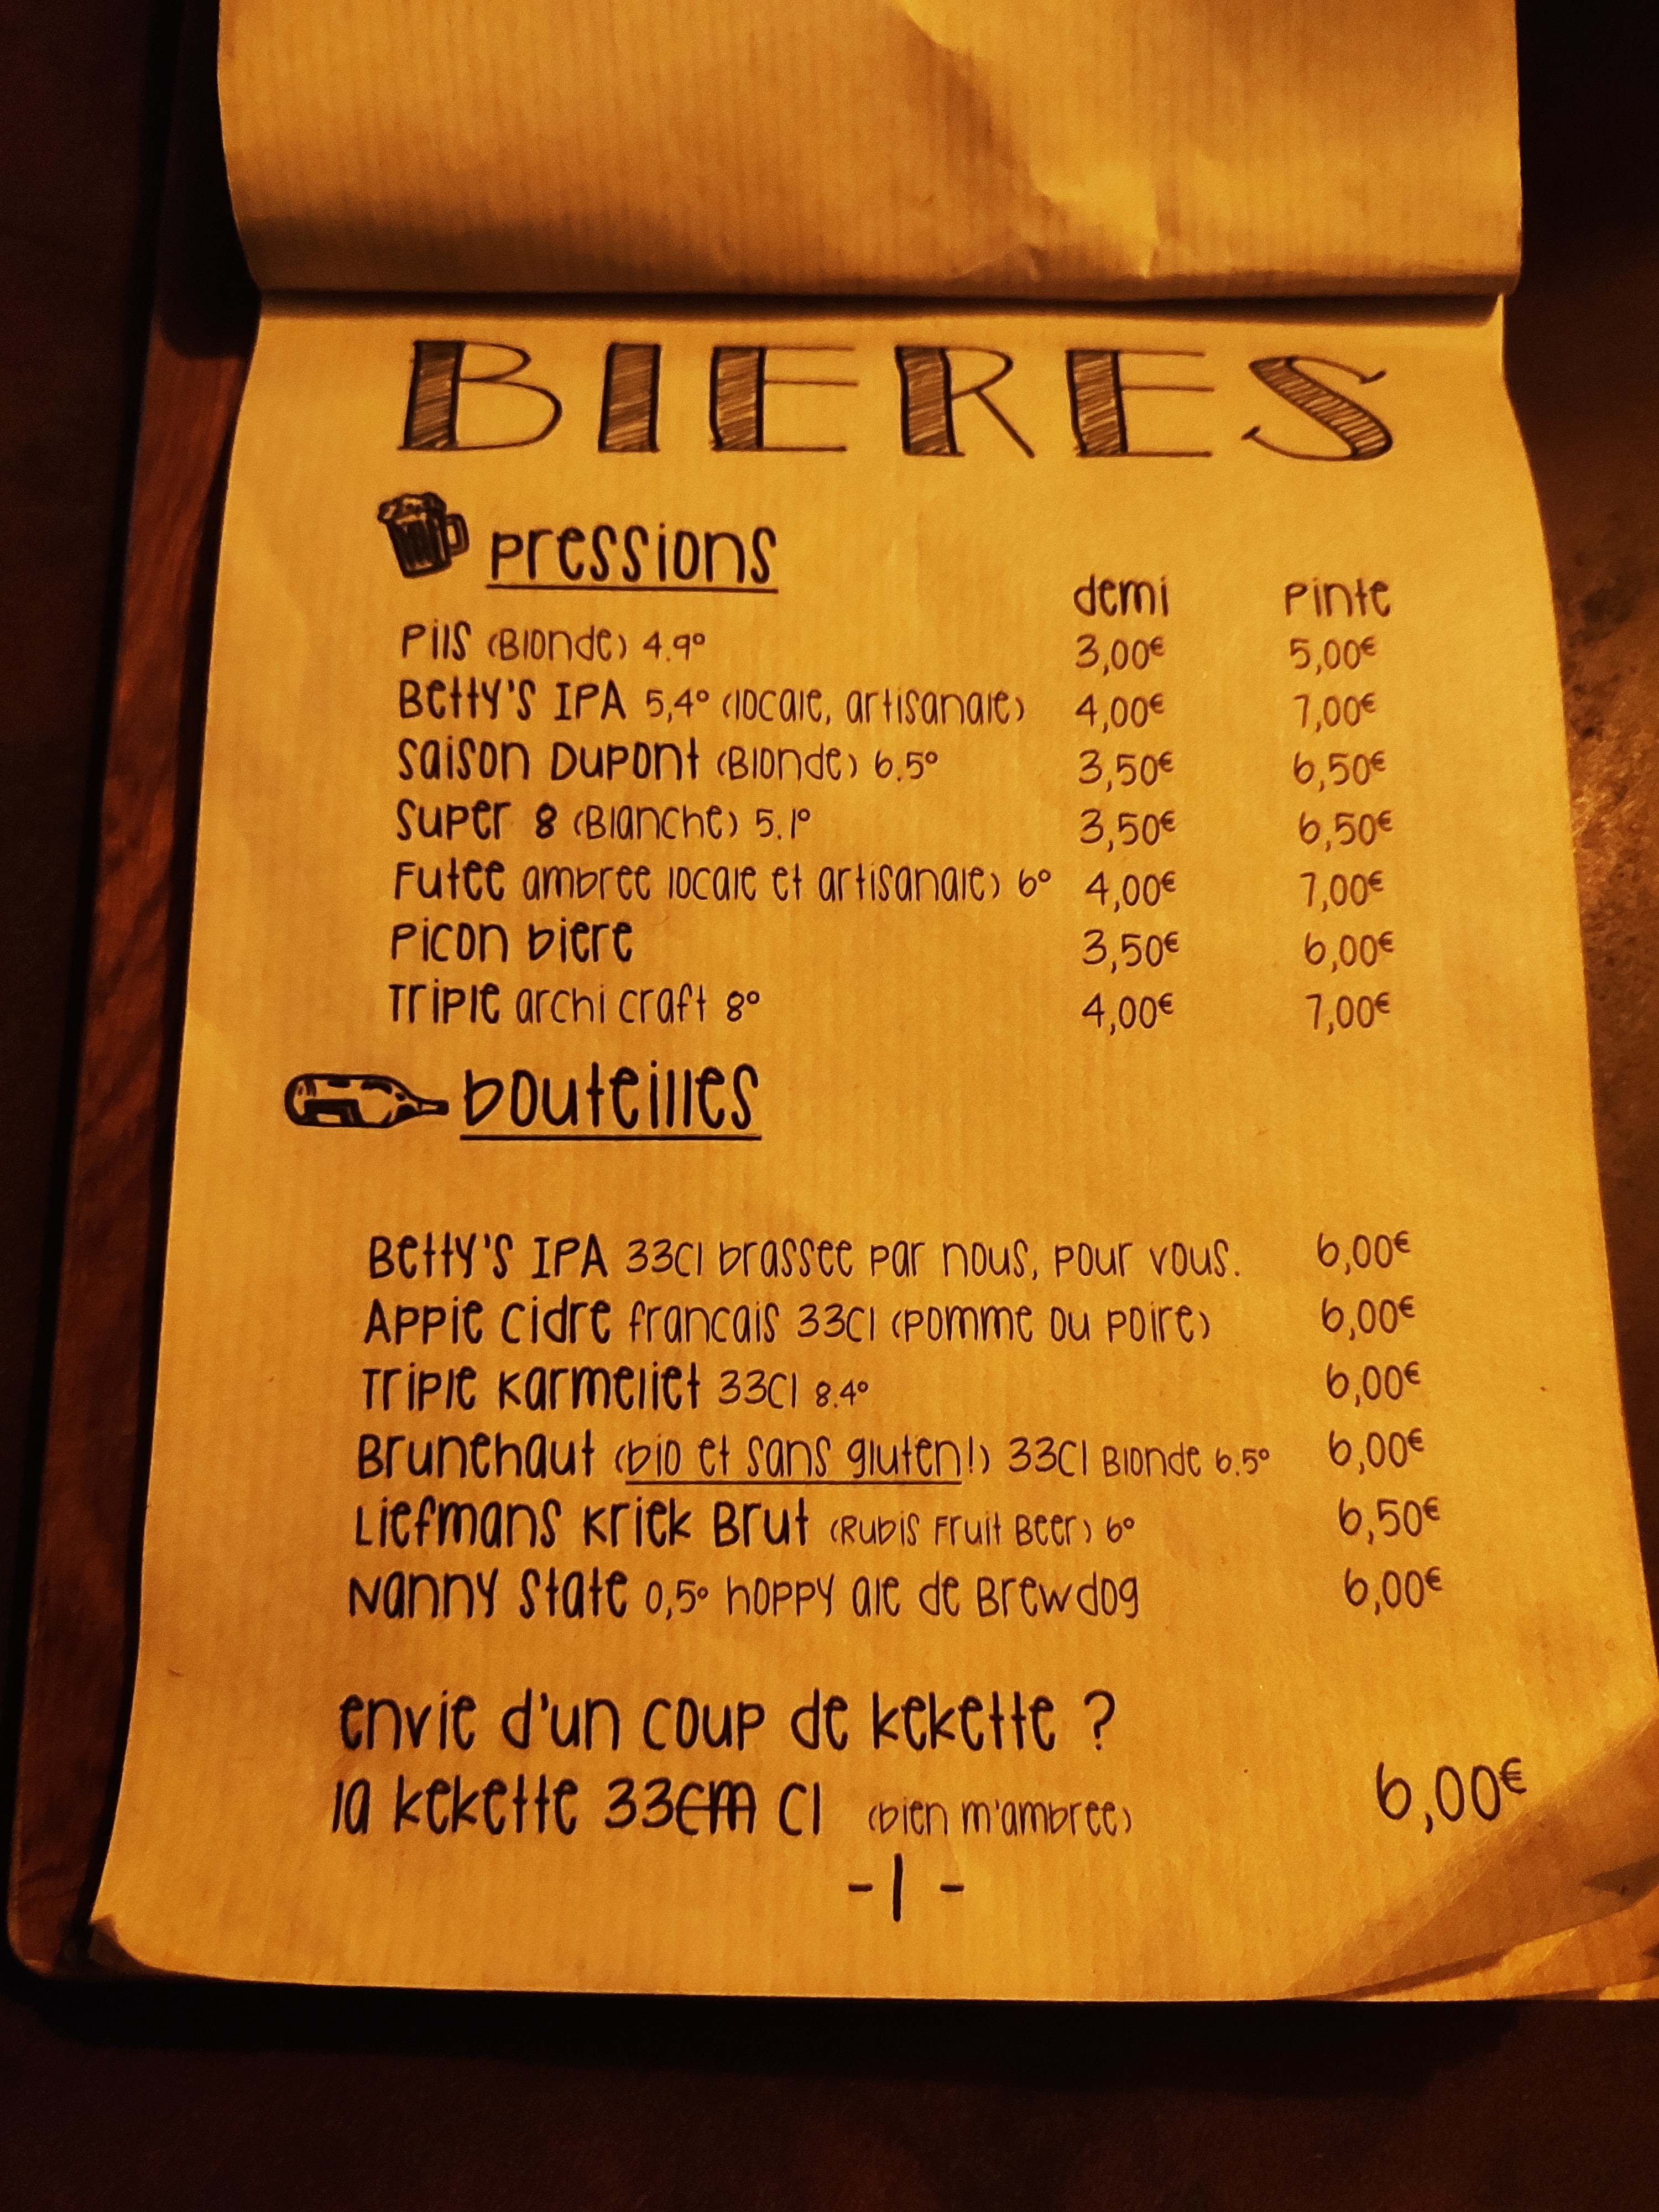 BIERES
Pressions
demi Pinte
Pils (Blonde) 4.9° 3,00€ 5,00€
Betty's IPA 5,4° (locale, artisanale) 4,00€ 7,00€
Saison Dupont (Blonde) 6.5° 3,50€ 6,50€
Super 8 (Blanche) 5.1° 3,50€ 6,50€
Futee ambree locale et artisanale) 6° 4,00€ 7,00€
Picon biere 3,50€ 6,00€
Triple archi craft 8° 4,00€ 7,00€
bouteilles
Betty's IPA 33Cl brassee par nous, pour vous. 6,00€
Appie cidre francais 33Cl (pomme ou poire) 6,00€
Triple Karmeliet 33Cl 8.4° 6,00€
Brunehaut (bio et sans gluten!) 33Cl Blonde 6.5° 6,00€
Liefmans Kriek Brut (Rubis Fruit Beer) 6° 6,50€
Nanny State 0,5° hoppy ale de Brewdog 6,00€
envie d'un coup de kekette ?
la kekette 33cm Cl (bien m'ambree) 6,00€
-1-